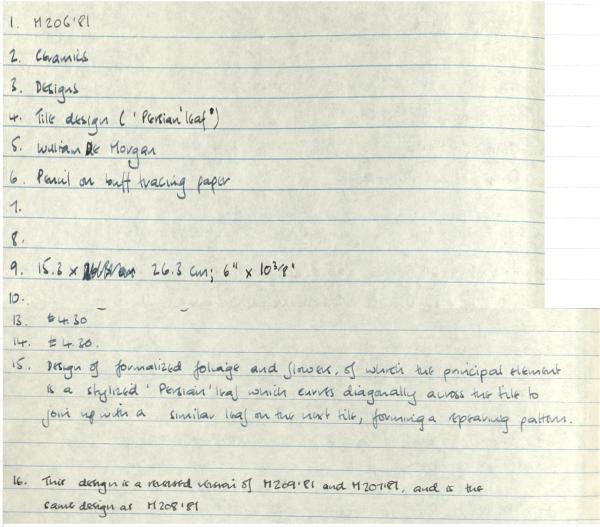 1. M206'81
2. Ceramics
3. Designs
4. Tile design ('Persian' leaf')
5. William De Morgan
6. Pencil on buff tracing paper
7.
8.
9. 15.3 x 26.3 cm; 6" x 10 3/8"
10.
13. £4.30
14. £4.30.
15. Design of formalized foliage and flowers, of which the principal element
is a stylized 'Persian' leaf which curves diagonally across the tile to
join up with a similar leaf on the next tile, forming a repeating pattern.
16. This design is a reversed version of M209'81 and M207'81, and is the
same design as M208'81